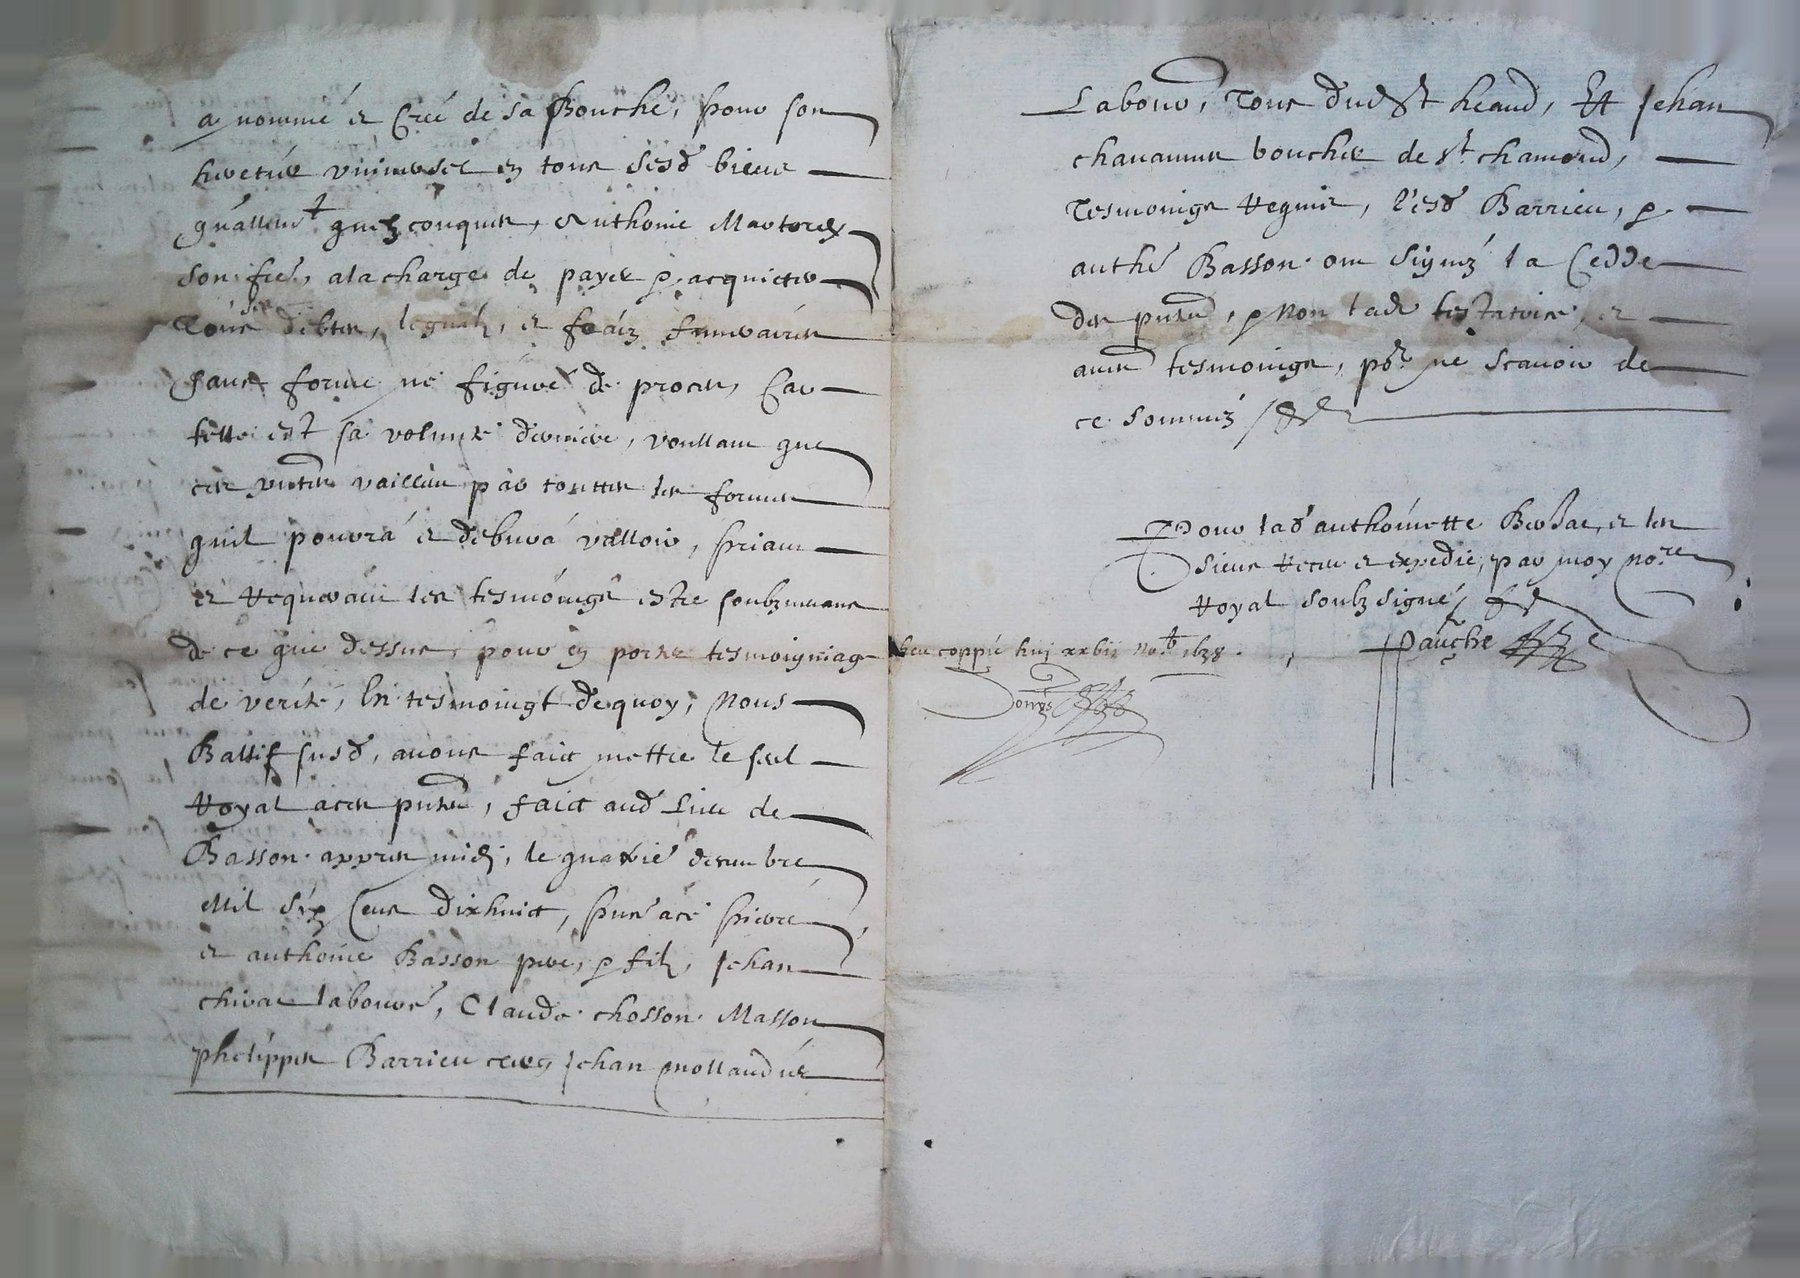 a nommé et Créé de sa Bouche, pour son
heretier universel en tous sesd biens
quelz conques, Anthonie
son filz, a la charge de payer & acquicter
Tous ses debtes, legatz, et fraiz funeraires
sans forme ne figure de proces, Car
telle est sa volunté derniere, voullant que
ces vaillent par touttes les formes
quil pourra et debvra valloir, priant
et requerant les tesmoings estre soubznommes
de ce que dessus, pour en porter tesmoigniage
de verité, En tesmoingt de quoy, Nous
Baillif susd, avons faict mettre le scel
Royal a ces pntes, faict aud Lieu de
Basson appres midy, le quatrie decembre
Mil Six Cens dixhuict, pns ace pierre
et anthoine Basson pere, & filz, Jehan
laboure, Claude chosson Masson
phelippes Barrieu Jehan
Labour, Tous dud St heand, Et Jehan
boucher de St chamond,
Tesmoings Requis, Lesd Barrieu, &
anthe Basson ont Signéz la Cedde
des pntes, & Non lad testatrice, et
autres tesmoings, por ne scavoir de
ce sommez
Pour lad anthoinette et les
siens et expedie, par moy nore
Royal soubz signé
coppie huy xxvii